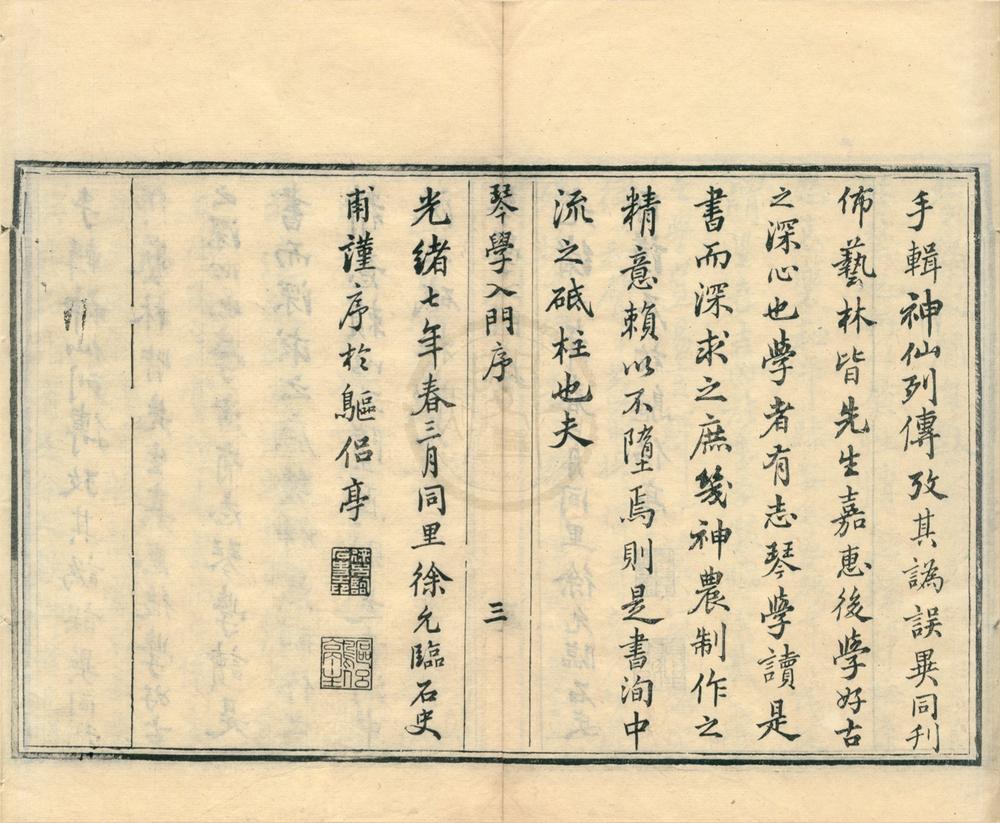 手輯神仙列傳攷其譌誤異同刋
佈藝林皆先生嘉惠後學好古
之深心也學者有志琴學讀是
書而深求之庶㡬神農制作之
精意賴以不墮焉則是書洵中
流之砥柱也夫
琴學入門序
三
光緒七年春三月同里徐允臨石史
甫謹序於驅侣亭